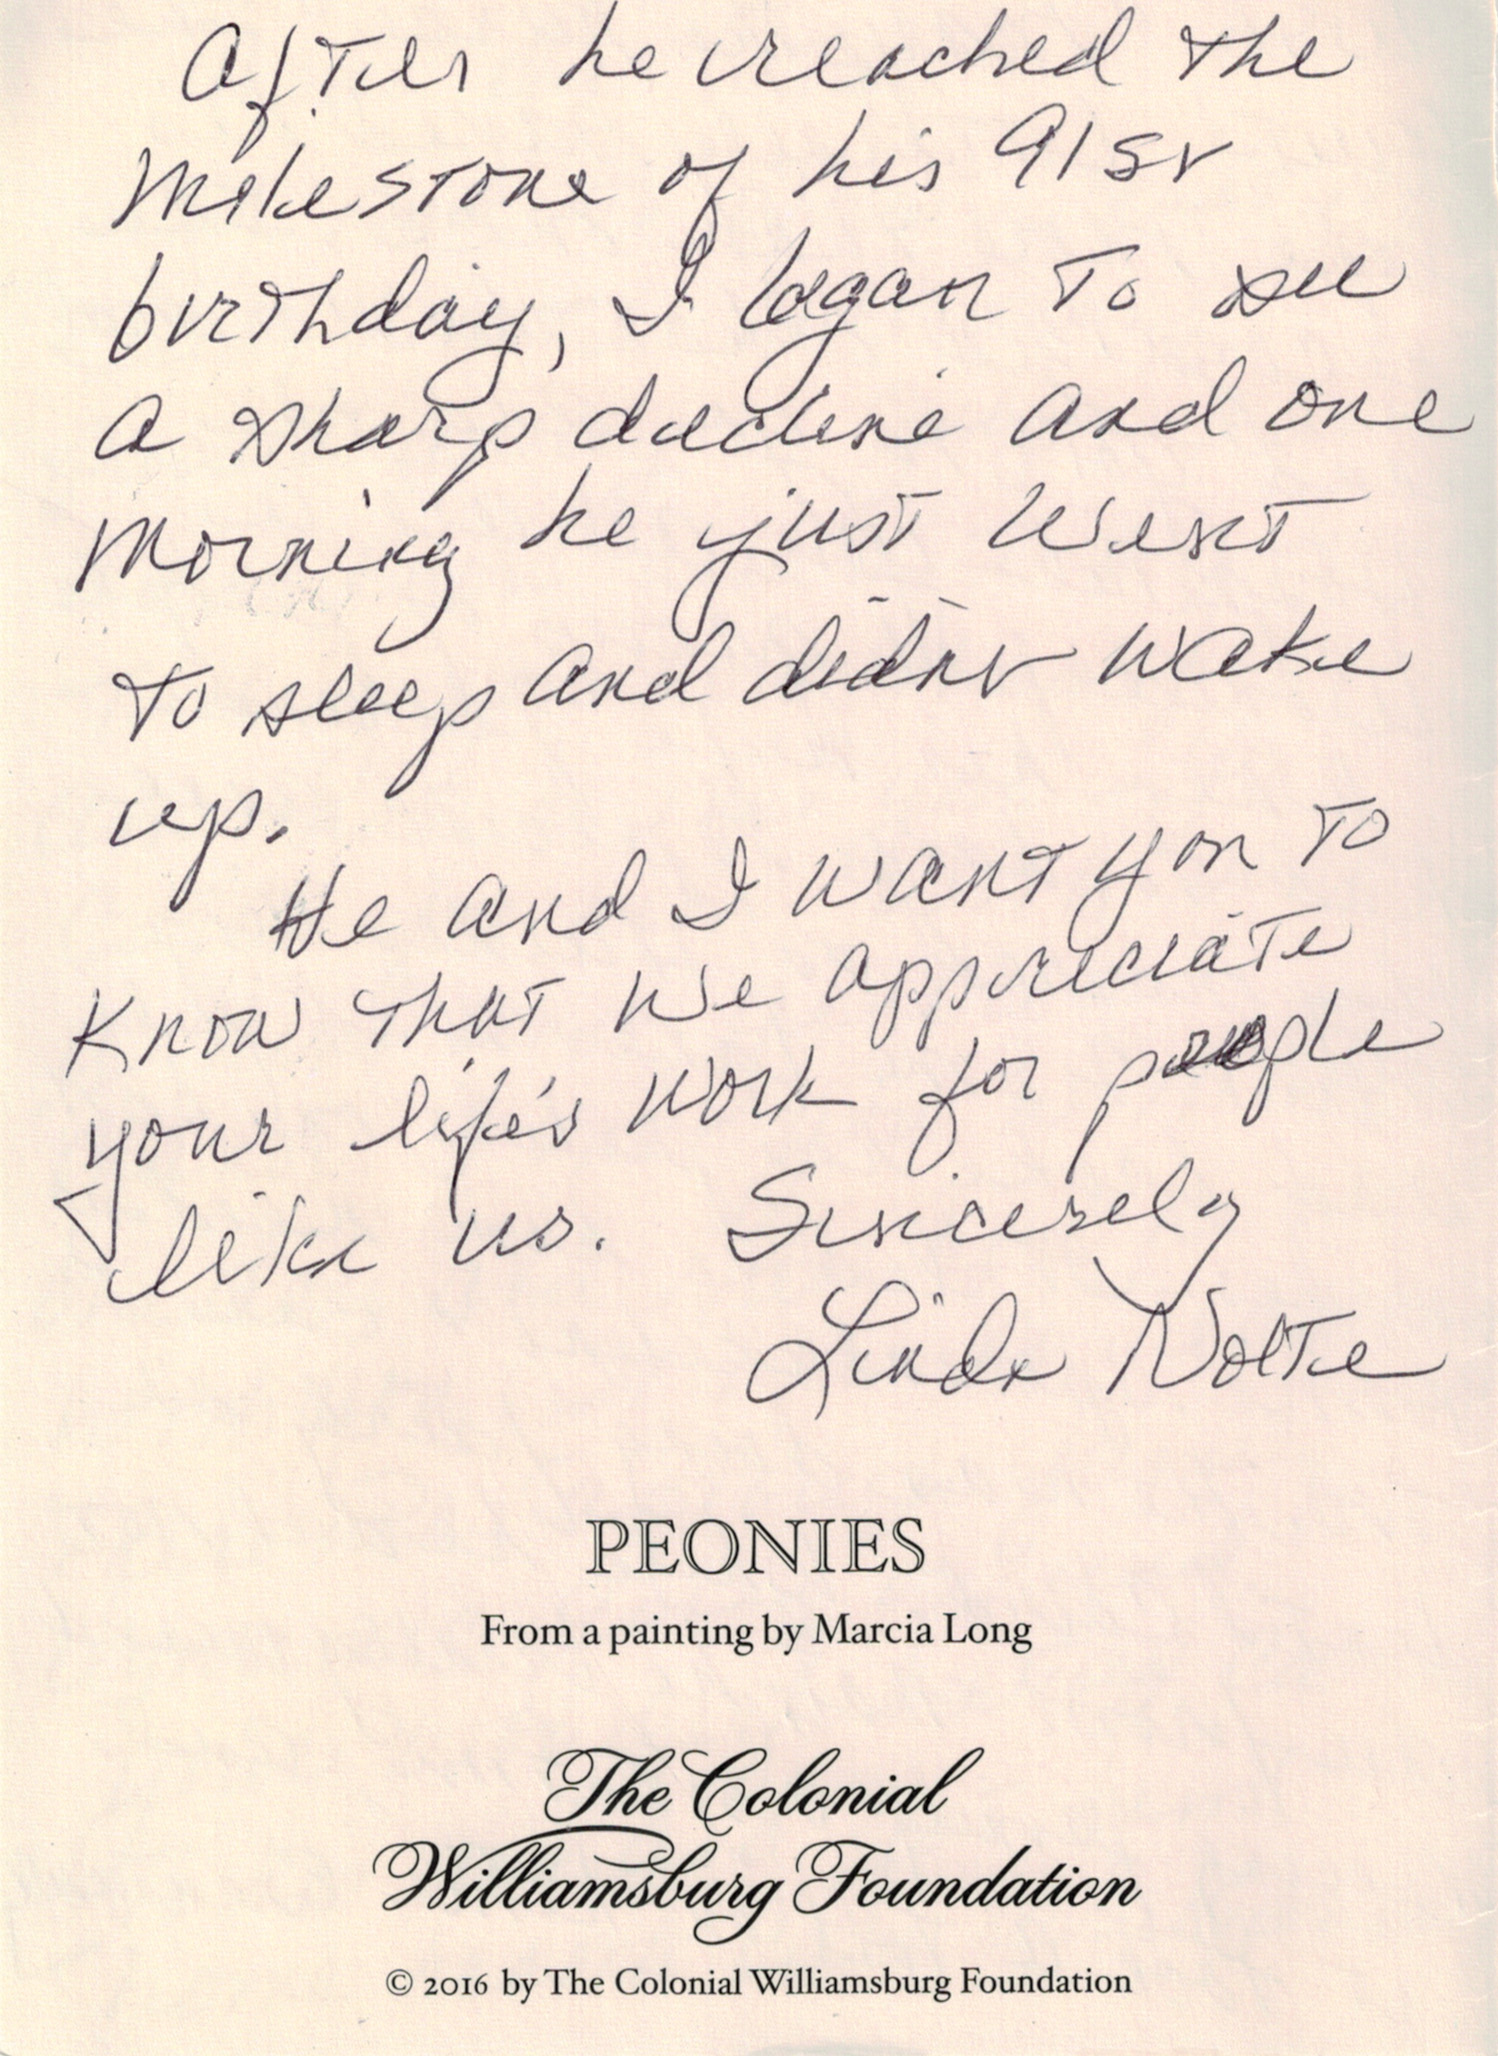 After he reached the
Milestone of his 91st
birthday, I began to see
a sharp decline and one
Morning he just went
to sleep and didn't wake
up.
He and I want you to
Know that we appreciate
your life's work for people
like us. Sincerely
Linda Nolte
PEONIES
From a painting by Marcia Long
The Colonial
Williamsburg Foundation
© 2016 by The Colonial Williamsburg Foundation